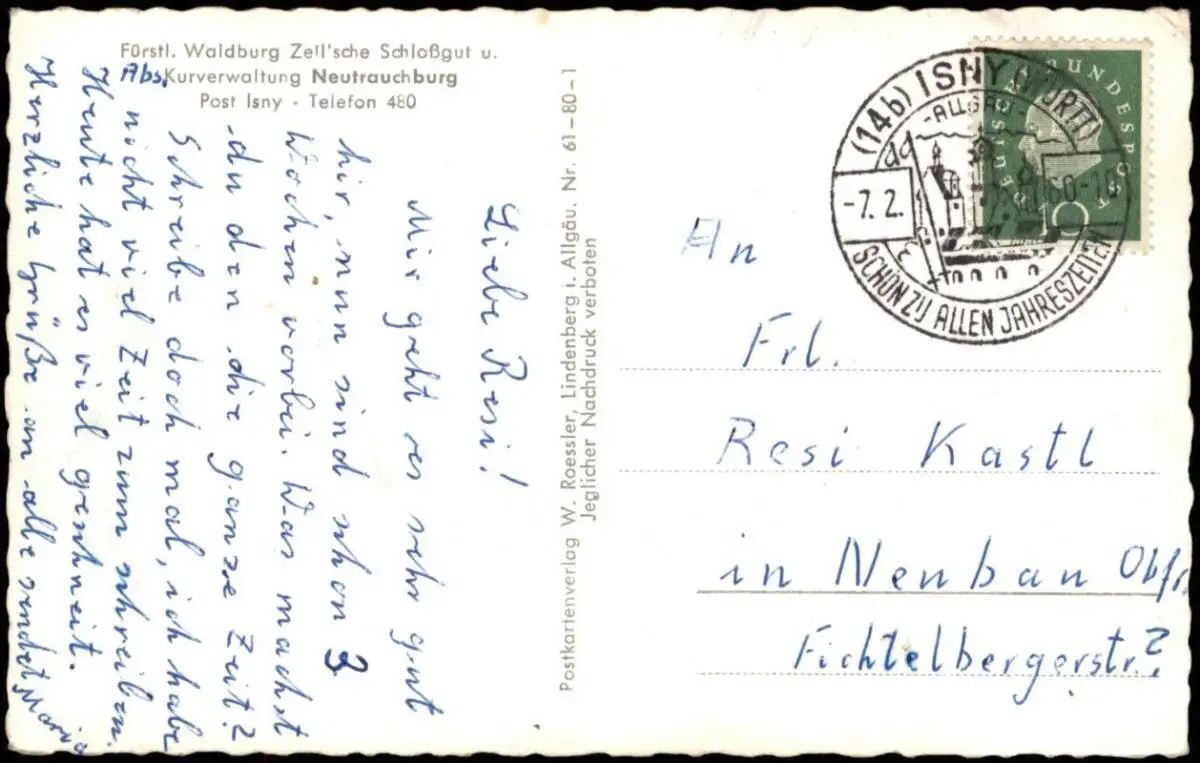 Fürstl. Waldburg Zeil'sche Schloßgut u.
Abs. Kurverwaltung Neutrauchburg
Post Isny - Telefon 480
Liebe Resi!
Mir geht es sehr gut
hir, nun sind schon 3
Wochen vorbei. Was machst
du den die ganze Zeit?
Schreibe doch mal, ich habe
nicht viel Zeit zum schreiben.
Heute hat es viel geschneit.
Herzliche Grüße an alle sendet Maria
Postkartenverlag W. Roessler, Lindenberg i. Allgäu, Nr. 61-80-1
Jeglicher Nachdruck verboten
(14b) ISNY (WÜRTT)
-ALLGÄU-
-7.2.
SCHÖN ZU ALLEN JAHRESZEITEN
DEUTSCHE BUNDESPOST
10
An
Frl.
Resi Kastl
in Neubau Obfr.
Fichtelbergerstr. 2